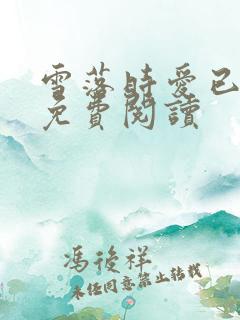 雪落時愛已
免費閱讀
馮後祥
未经同意禁止转载